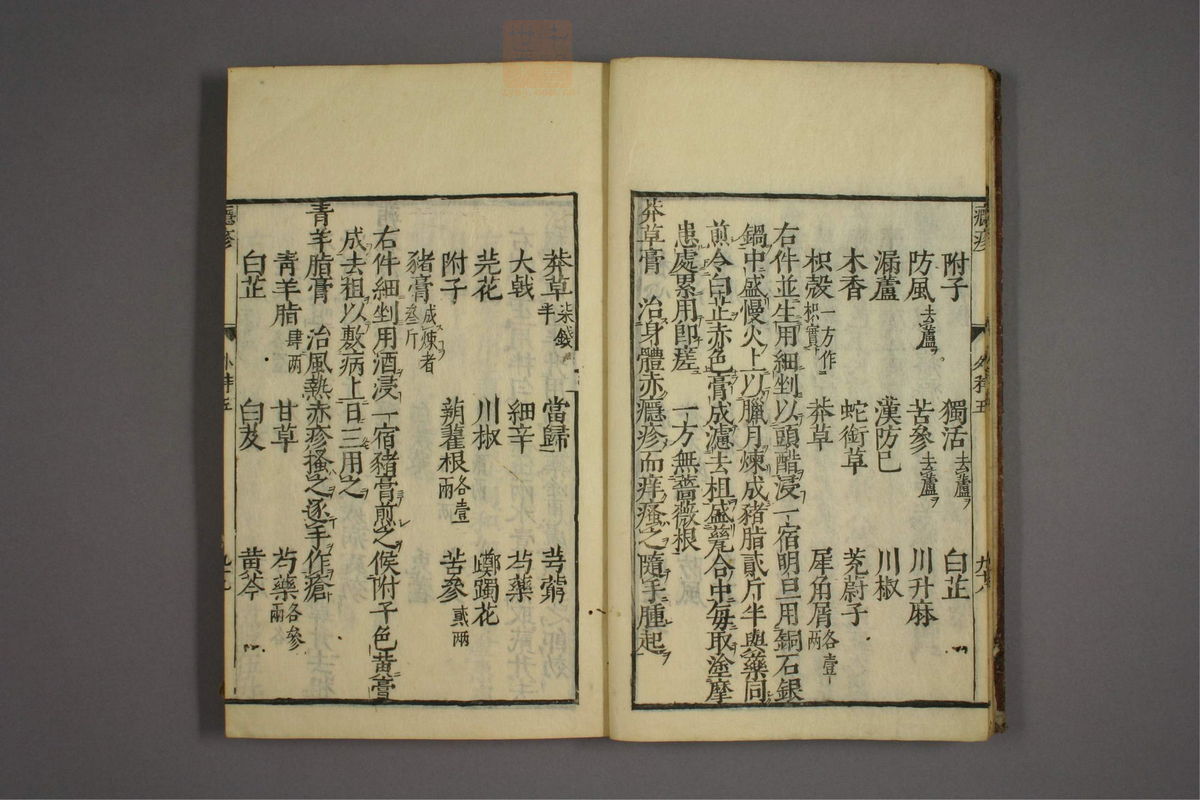 附子 獨活去蘆 白芷
防風去蘆 苦參去蘆 川升麻
漏蘆 漢防已 川椒
木香 蛇銜草 茺蔚子
枳殼一方作枳實 莽草 犀角屑各壹兩
右件並生用細剉以頭醋浸一宿明旦用銅石銀
鍋中盛慢火上以臘月煉成豬脂貳斤半與藥同
煎令白芷赤色膏成濾去柤盛甆合中每取塗摩
患處累用即瘥 一方無薔薇根
莽草膏 治身體赤癮疹而痒瘙之隨手腫起
莽草柒錢半 當歸 芎藭
大戟 細辛 芍藥
芫花 川椒 躑躅花
附子 蒴藋根各壹兩 苦參貳兩
豬膏成煉者叁斤
右件細剉用酒浸一宿豬膏煎之候附子色黃膏
成去柤以敷病上日三用之
青羊脂膏 治風熱赤疹搔之逐手作瘡
青羊脂肆兩 甘草 芍藥各參兩
白芷 白芨 黃芩
癮疹